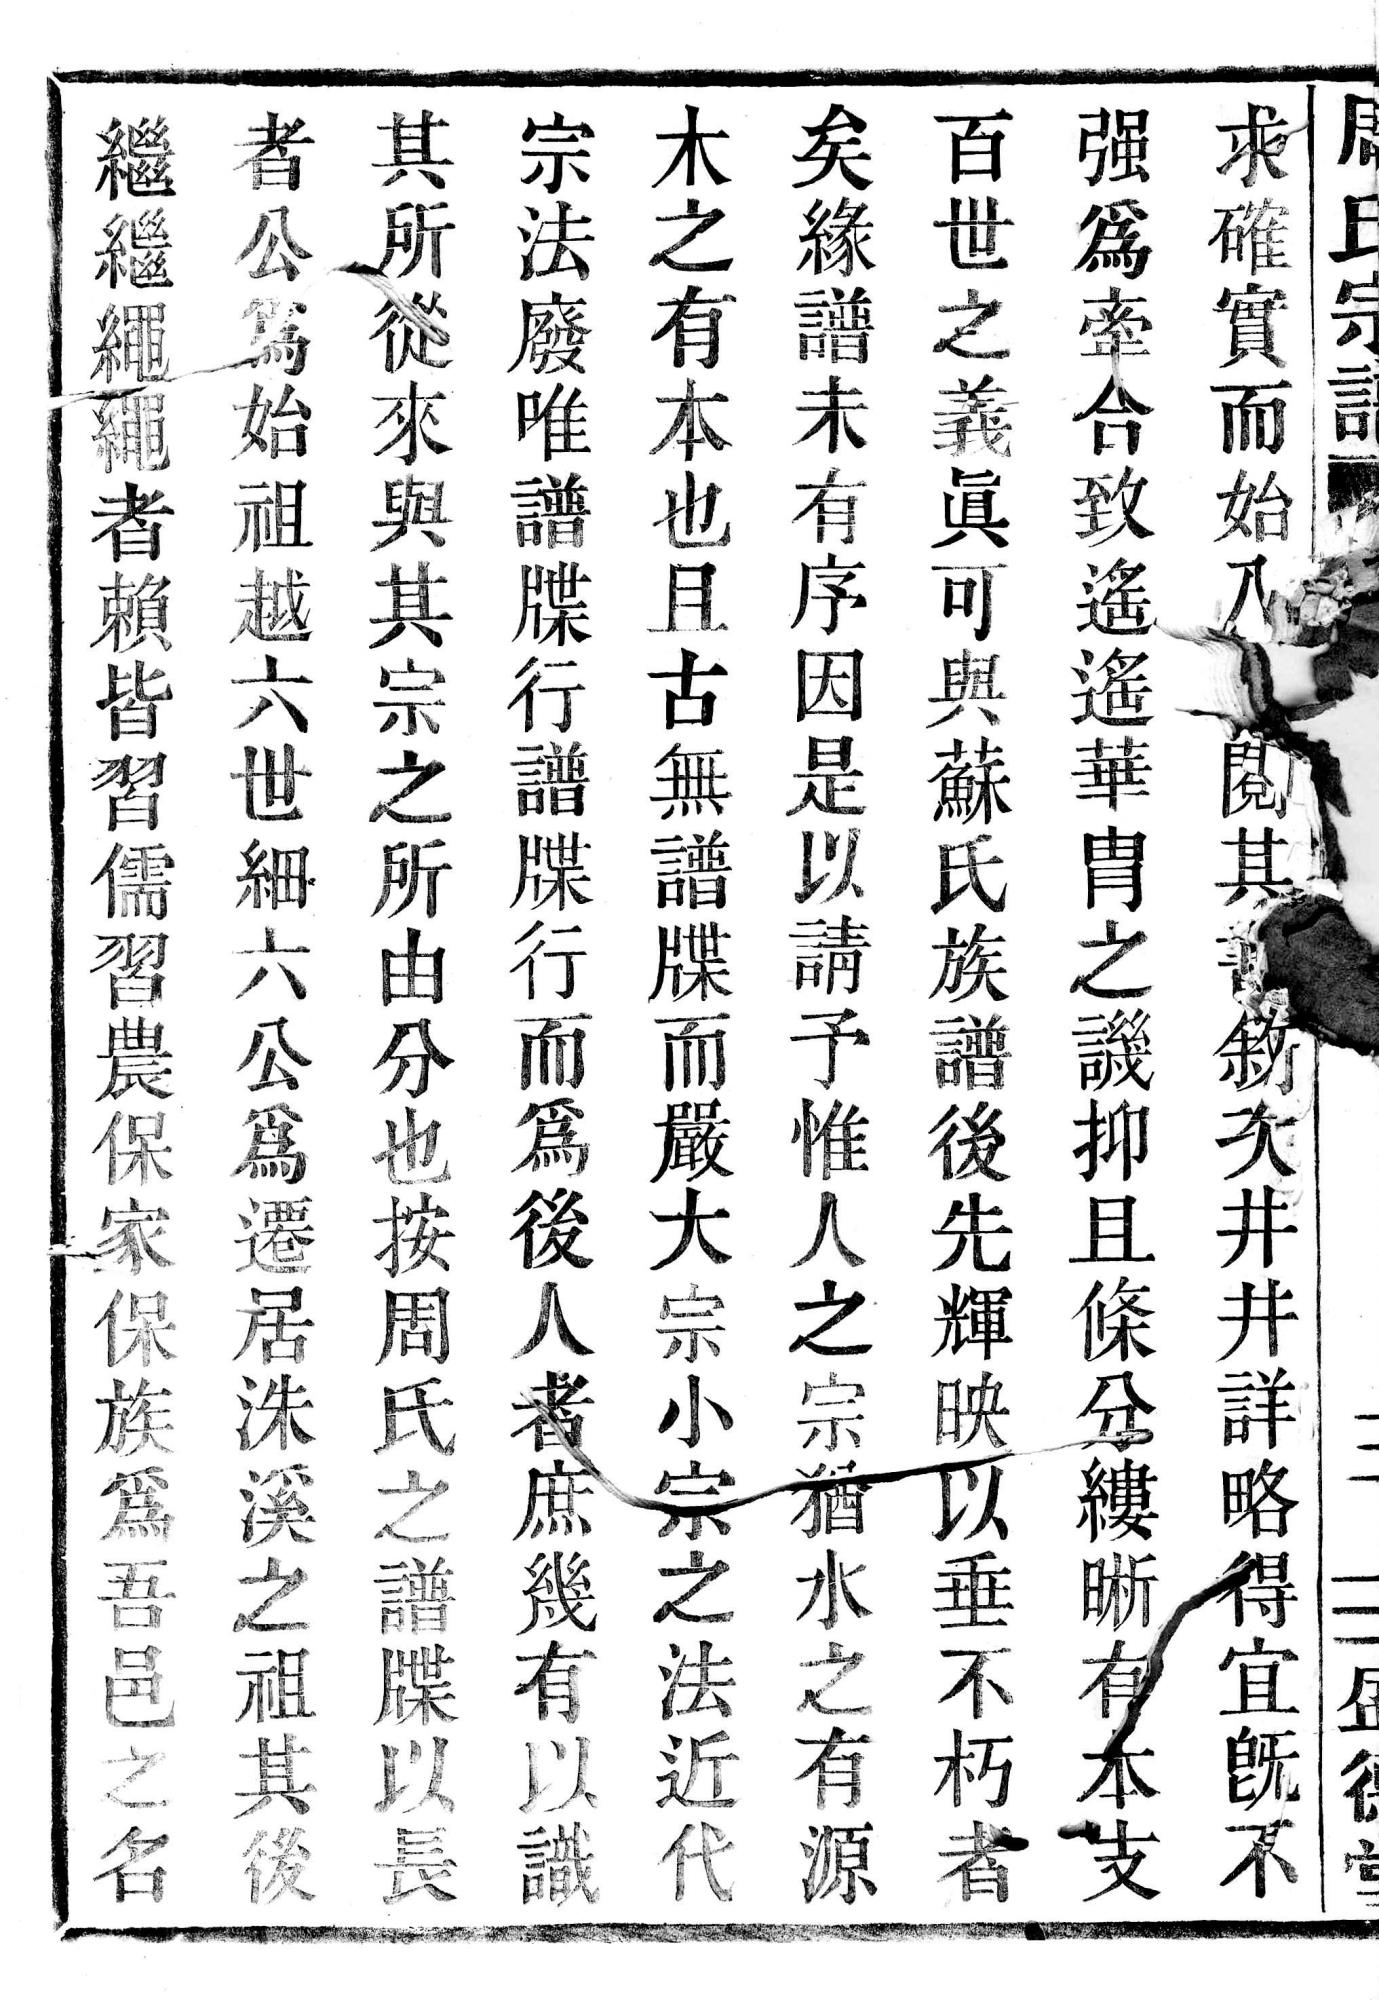 周氏宗譜
盛德堂
求確實而始閱其書敘次井井詳略得宜旣不
强爲牽合致遙遙華胄之譏抑且條分縷晰有本支
百世之義眞可與蘇氏族譜後先輝映以垂不朽者
矣緣譜未有序因是以請予惟人之宗猶水之有源
木之有本也且古無譜牒而嚴大宗小宗之法近代
宗法廢唯譜牒行譜牒行而爲後人者庶幾有以識
其所從來與其宗之所由分也按周氏之譜牒以長
者公爲始祖越六世細六公爲遷居洙溪之祖其後
繼繼繩繩者賴皆習儒習農保家保族爲吾邑之名